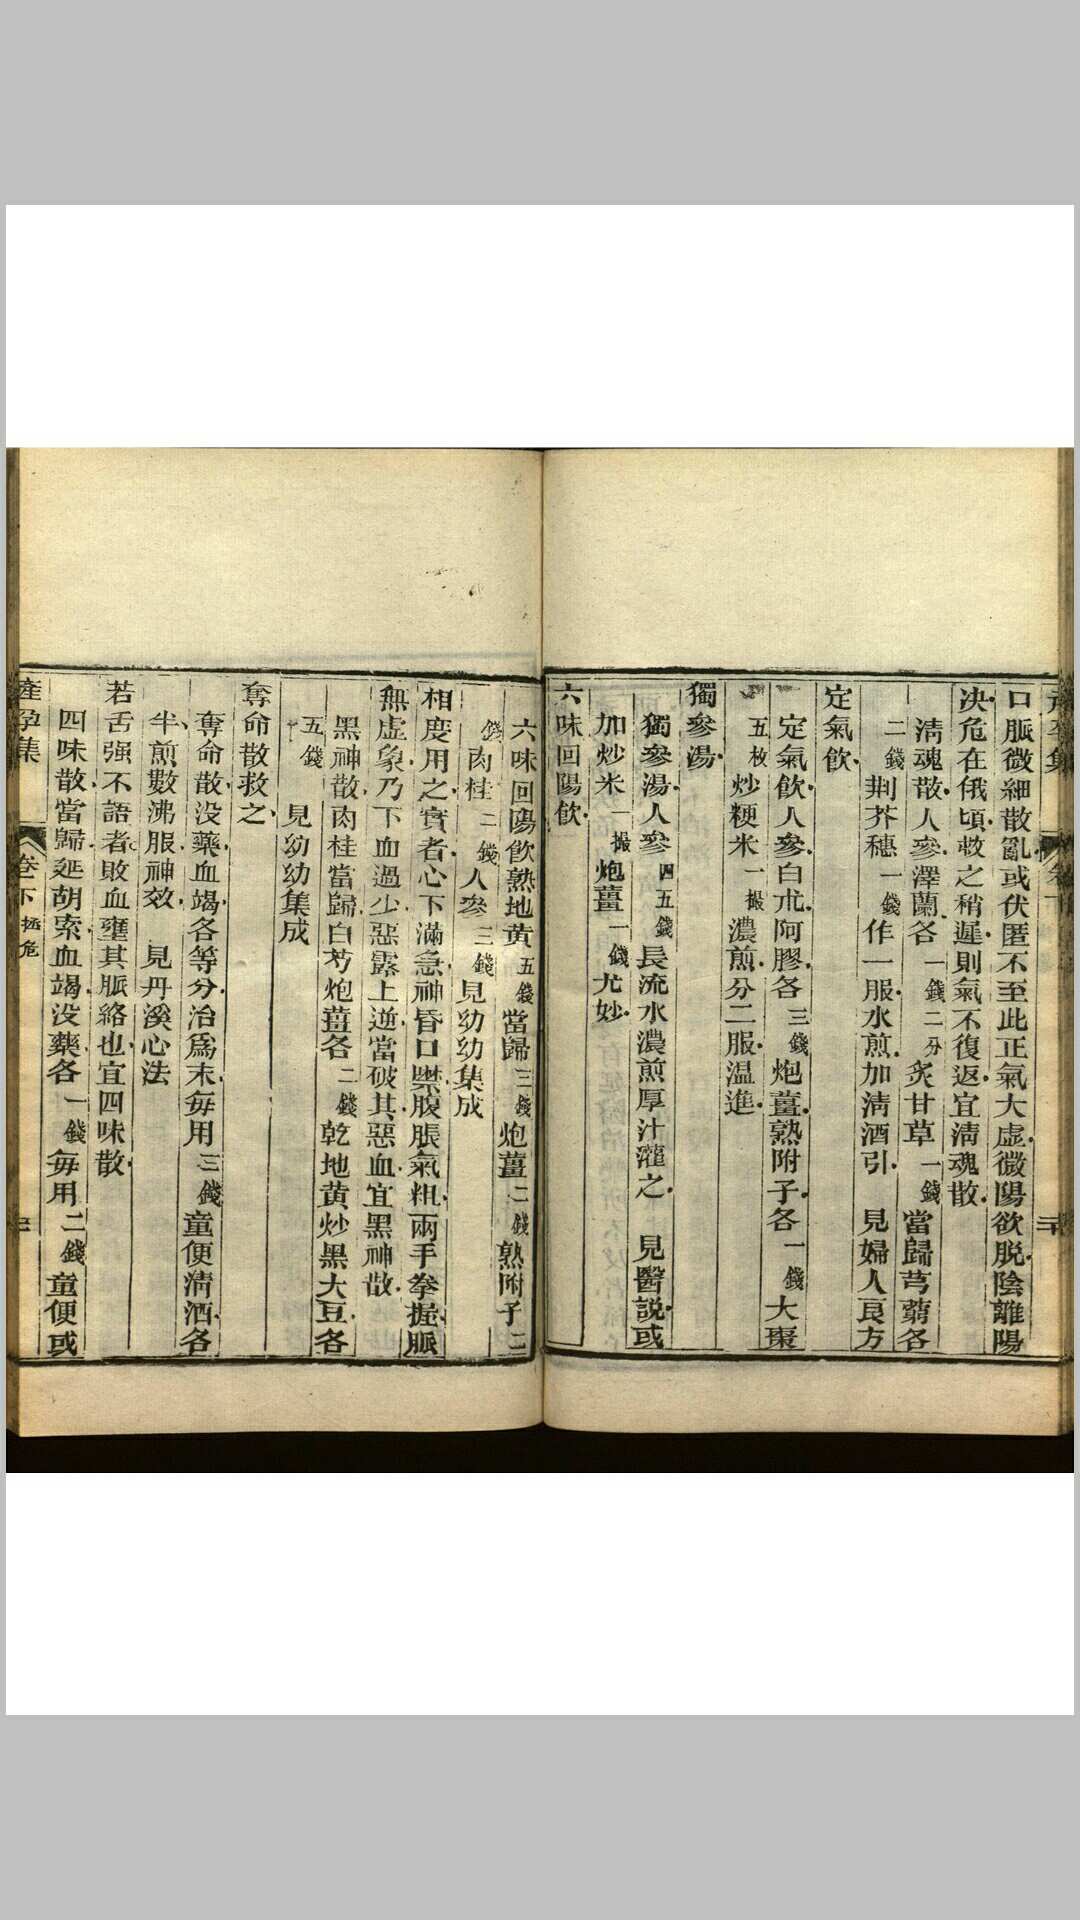 口脈微細散亂或伏匿不至此正氣大虛微陽欲脫陰離陽
決危在俄頃救之稍遲則氣不復返宜清魂散
清魂散人參澤蘭各一錢二分炙甘草一錢當歸芎藭各
二錢荆芥穗一錢作一服水煎加清酒引 見婦人良方
定氣飲
定氣飲人參白朮阿膠各三錢炮薑熟附子各一錢大棗
五枚炒粳米一撮濃煎分二服溫進
獨參湯
獨參湯人參四五錢長流水濃煎厚汁灌之 見醫說或
加炒米一撮炮薑一錢尤妙
六味回陽飲
六味回陽飲熟地黄五錢當歸三錢炮薑二錢熟附子二
錢肉桂二錢人參三錢見幼幼集成
相度用之實者心下滿急神昏口禁腹脹氣粗兩手拳握脈
無虛象乃下血過少惡露上逆當破其惡血宜黑神散
黑神散肉桂當歸白芍炮薑各二錢乾地黄炒黑大豆各
五錢 見幼幼集成
奪命散救之
奪命散没藥血竭各等分治爲末每用三錢童便清酒各
半煎數沸服神效 見丹溪心法
若舌强不語者敗血壅其脈絡也宜四味散
四味散當歸延胡索血竭没藥各一錢每用二錢童便或
產孕集 卷下 拯危